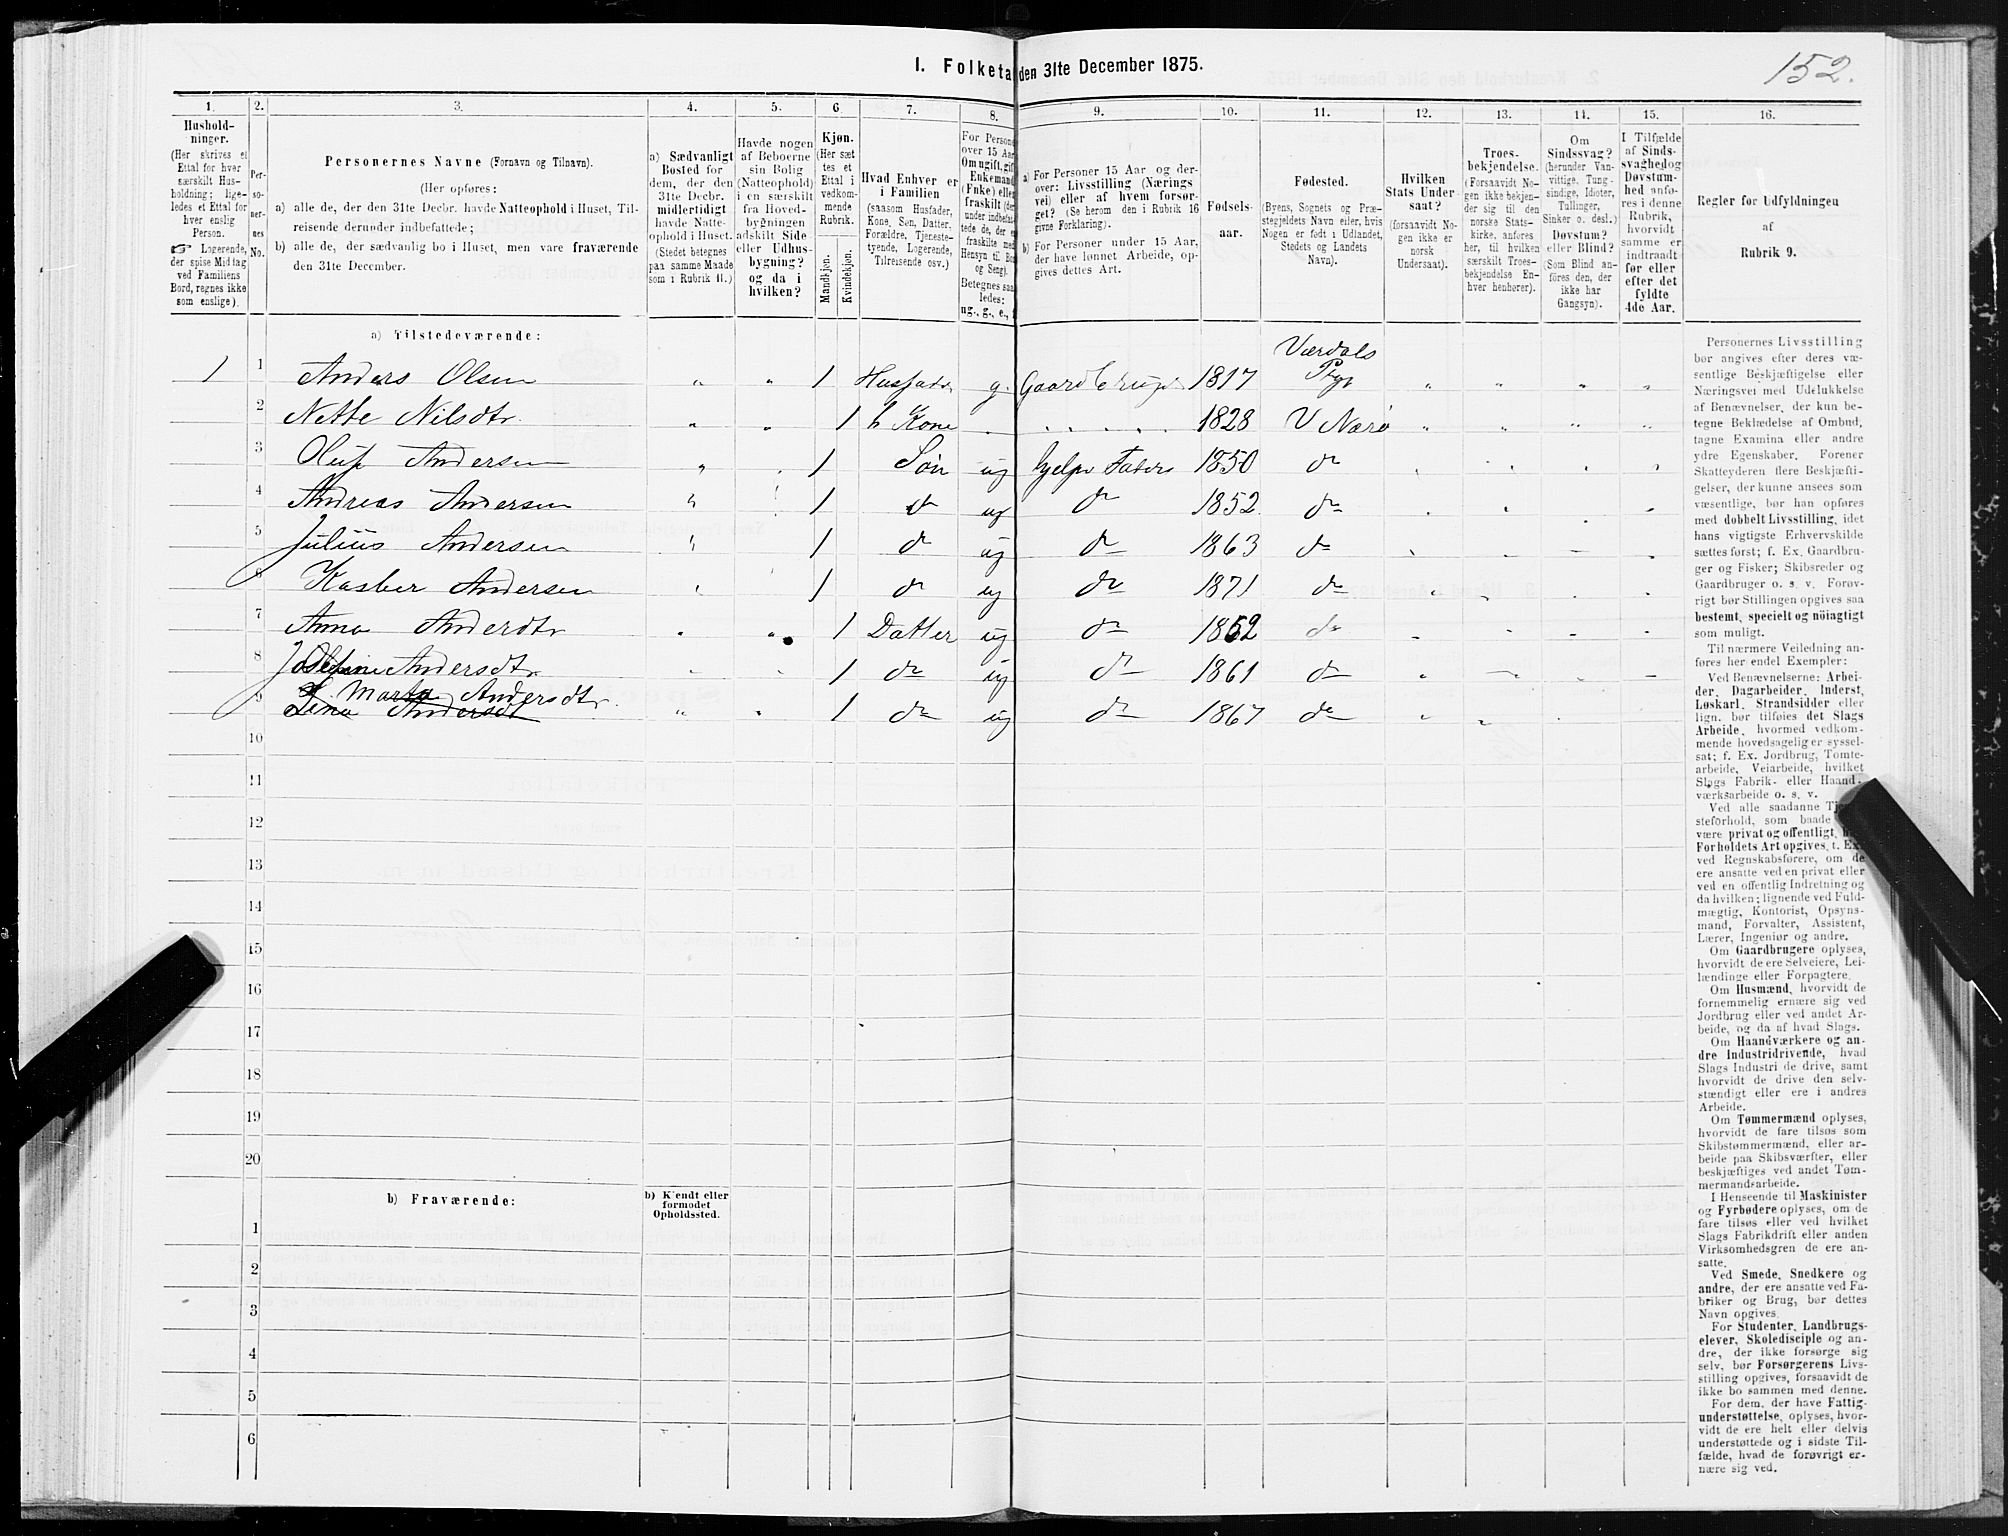 I. Folketa den 31te December 1875.
152.
1.
2.
3.
4.
5.
6.
7.
8.
9.
10.
11.
12.
13.
14.
15.
16.
Hushold-
ninger.
(Her skrives et
Ettal for hver
særskilt Hus-
holdning; lige-
ledes et Ettal for
hver enslig
Person.
☞ Logerende,
der spise Middag
ved Familiens
Bord, regnes ikke
som enslige).
Per-
so-
ner-
nes
No.
Personernes Navne (Fornavn og Tilnavn).
(Her opføres:
a) alle de, der den 31te Decbr. havde Natteophold i Huset, Til-
reisende derunder indbefattede;
b) alle de, der sædvanlig bo i Huset, men vare fraværende
den 31te December.
a) Sædvanligt
Bosted for
dem, der den
31te Decbr.
midlertidigt
havde Natte-
ophold i Huset.
(Stedet betegnes
paa samme Maade
som i Rubrik 11.)
Havde nogen
af Beboerne
sin Bolig
(Natteophold)
i en særskilt
fra Hoved-
bygningen
adskilt Side-
eller Udhus-
bygning?
og da i
hvilken?
Kjøn.
(Her sæt-
tes et
Ettal i
vedkom-
mende
Rubrik.
Mandkjøn.
Kvindekjøn.
Hvad Enhver er
i Familien
(saasom Husfader,
Kone, Søn, Datter,
Forældre, Tjeneste-
tyende, Logerende,
Tilreisende osv.)
For Person
over 15 Aar
Om ugift, gift
Enkemand
(Enke) elle
fraskilt (der
under indbefat-
tede de, der e
fraskilte med
Hensyn til Bo
og Seng).
Betegnes saa
ledes:
ug., g., e., f
a) For Personer 15 Aar og der-
over: Livsstilling (Nærings
vei) eller af hvem forsør-
get? (Se herom den i Rubrik 16
givne Forklaring).
b) For Personer under 15 Aar,
der have lønnet Arbeide, op-
gives dettes Art.
Fødsels-
aar.
Fødested.
(Byens, Sognets og Præ-
stegjeldets Navn eller, hvis
Nogen er født i Udlandet,
Stedets og Landets
Navn).
Hvilken
Stats Under-
saat?
(forsaavidt No-
gen ikke er
norsk
Undersaat).
Troes-
bekjendelse.
(Forsaavidt No-
gen ikke bekjen-
der sig til den
norske Stats-
kirke, anføres
her, til hvilken
særskilt Troes-
bekjendelse En-
hver henhører).
Om
Sindssvag?
(herunder Van-
vittige, Tung-
sindige, Idioter,
Tullinger,
Sinker o. desl.)
Døvstum?
eller Blind?
(Som Blind an-
føres den, der
ikke har
Gangsyn).
I Tilfælde
af Sinds-
svaghed og
Døvstum-
hed anfø-
res i denne
Rubrik,
hvorvidt
samme er
indtraadt
før eller
efter det
fyldte
4de Aar.
Regler for Udfyldningen
af
Rubrik 9.
a) Tilstedeværende:
1 1 Anders Olsen " " 1 Husfad. g. Gaardbruger 1817 Værdals Pgj. " " " "
2 Nette Nilsdtr. " " 1 h Kone . . . . . . 1828 V Nærø " " " "
3 Oluf Andersen " . 1 Søn ug hjelper Faders 1850 do
4 Andreas Andersen " 1 do ug do 1852 do
5 Julius Andersen " 1 do ug do 1863 do
6 Kasber Andersen " 1 do ug do 1871 do
7 Anna Anderdtr " " 1 Datter ug do 1852 do
8 Josefine Andersdtr. 1 do ug do 1861 do
Marta Andersdtr.
9 Lina Andersdt " " 1 do ug do 1867 do
10
11
12
13
14
15
16
17
18
19
20
b) Fraværende:
b) Kjendt eller
formodet
Opholdssted.
1
2
3
4
5
6
Personernes Livsstilling
bør angives efter deres væ-
sentlige Beskjæftigelse eller
Næringsvei med Udelukkelse
af Benævnelser, der kun be-
tegne Beklædelse af Ombud,
tagne Examina eller andre
ydre Egenskaber. Forener
Skatteyderen flere Beskjæfti-
gelser, der kunne ansees som
væsentlige, bør han opføres
med dobbelt Livsstilling, idet
hans vigtigste Erhvervskilde
sættes først; f. Ex. Gaardbru-
ger og Fisker; Skibsreder og
Gaardbruger o. s. v. Forøv-
rigt bør Stillingen opgives saa
bestemt, specielt og nöiagtigt
som muligt.
Til nærmere Veiledning an-
føres her endel Exempler:
Ved Benævnelserne: Arbei-
der, Dagarbeider, Inderst,
Løskarl, Strandsidder eller
lign. bør tilføies det Slags
Arbeide, hvormed vedkom-
mende hovedsagelig er syssel-
sat; f. Ex. Jordbrug, Tomte-
arbeide, Veiarbeide, hvilket
Slags Fabrik- eller Haand-
værksarbeide o. s. v.
Ved alle saadanne Tje
steforhold, som baade
være privat og offentlig, h
Forholdets Art opgives, t. Ex
ved Regnskabsførere, om de
ere ansatte ved en privat eller
ved en offentlig Indretning og
da hvilken; lignende ved Fuld-
mægtig, Kontorist, Opsyns-
mand, Forvalter, Assistent,
Lærer, Ingeniør og andre.
Om Gaardbrugere oplyses,
hvorvidt de ere Selveiere, Lei-
lændinge eller Forpagtere.
Om Husmænd, hvorvidt de
fornemmelig ernære sig ved
Jordbrug eller ved andet Ar-
beide, og da af hvad Slags.
Om Haandværkere og an-
dre Industridrivende, hvad
Slags Industri de drive, samt
hvorvidt de drive den selv-
stændigt eller ere i andres
Arbeide.
Om Tømmermænd oplyses,
hvorvidt de fare tilsøs som
Skibstømmermænd, eller ar-
beide paa Skibsværfter, eller
beskjæftiges ved andet Tøm-
mermandsarbeide.
I Henseende til Maskinister
og Fyrbødere oplyses, om de
fare tilsøs eller ved hvilket
Slags Fabrikdrift eller anden
Virksomhedsgren de ere an-
satte.
Ved Smede, Snedkere og
andre, der ere ansatte ved Fa-
briker og Brug, bør dettes
Navn opgives
For Studenter, Landbrugs-
elever, Skoledisciple og an-
dre, der ikke forsørge sig
selv, bør Forsørgerens Livs-
stilling opgives, forsaavidt de
ikke bo sammen med denne.
For dem, der have Fattig-
understøttelse, oplyses, hvor-
vidt de ere helt eller delvis
understøttede og i sidste Til-
fælde, hvad de forøvrigt er-
nære sig ved.